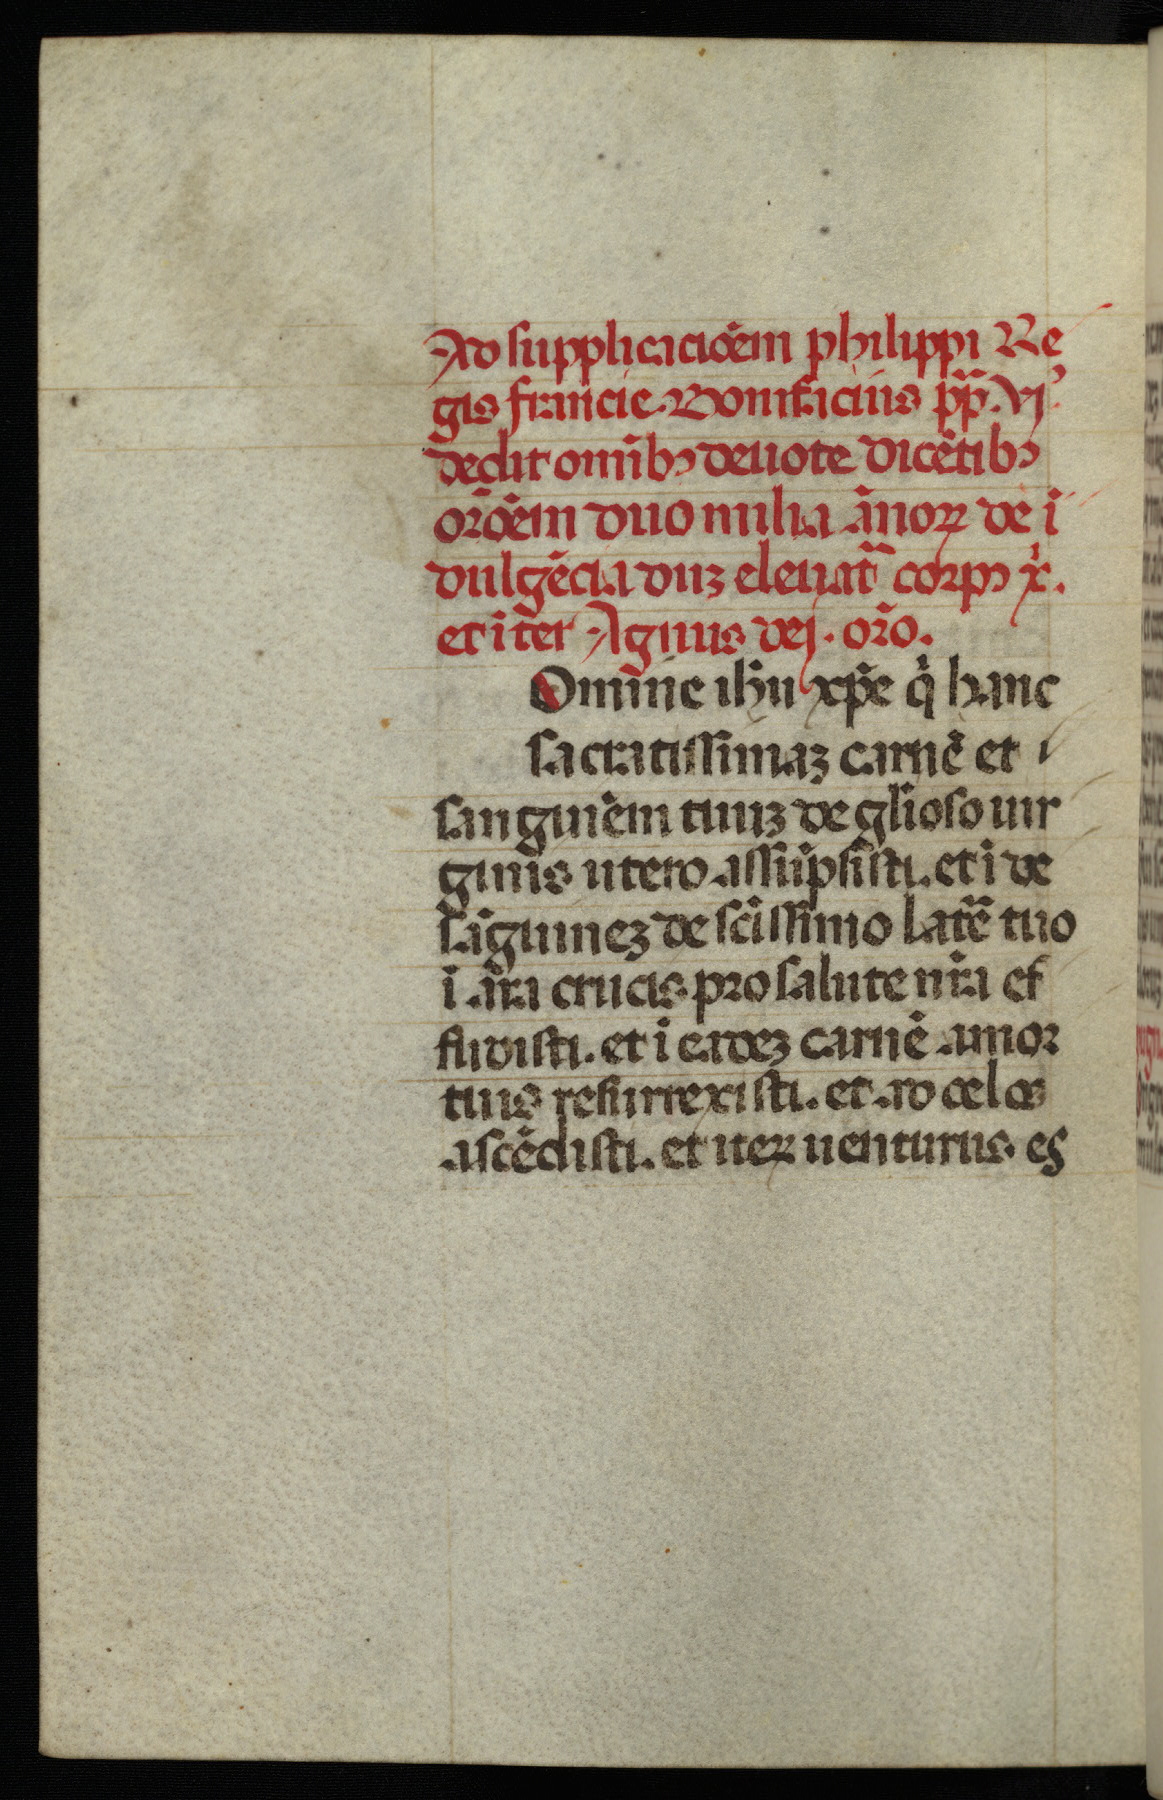 Ad supplicacioēm philippi Re
gis francie. Bonifacius pp̄. vj⁹
dedit om̄ibꝰ deuote dicētibꝰ
orōēm duo milia ānoꝝ de ī
dulgēcia duꝫ eleuat͛ corpꝰ xͥ.
et īter Agnus dei. orō.
Domine ih̄u xp̄e qͥ hanc
sacratissimaꝫ carnē et
sanguinēm tuuꝫ de gl̄ioso uir
ginis utero assūpsisti. et ide
sāguineꝫ de sc̄issimo latē tuo
ī āra crucis pro salute nr̄a ef
fudisti. et ī eadeꝫ carnē a mor
tuis resurrexisti. et ad celos
ascēdisti. et iteꝝ uenturus es